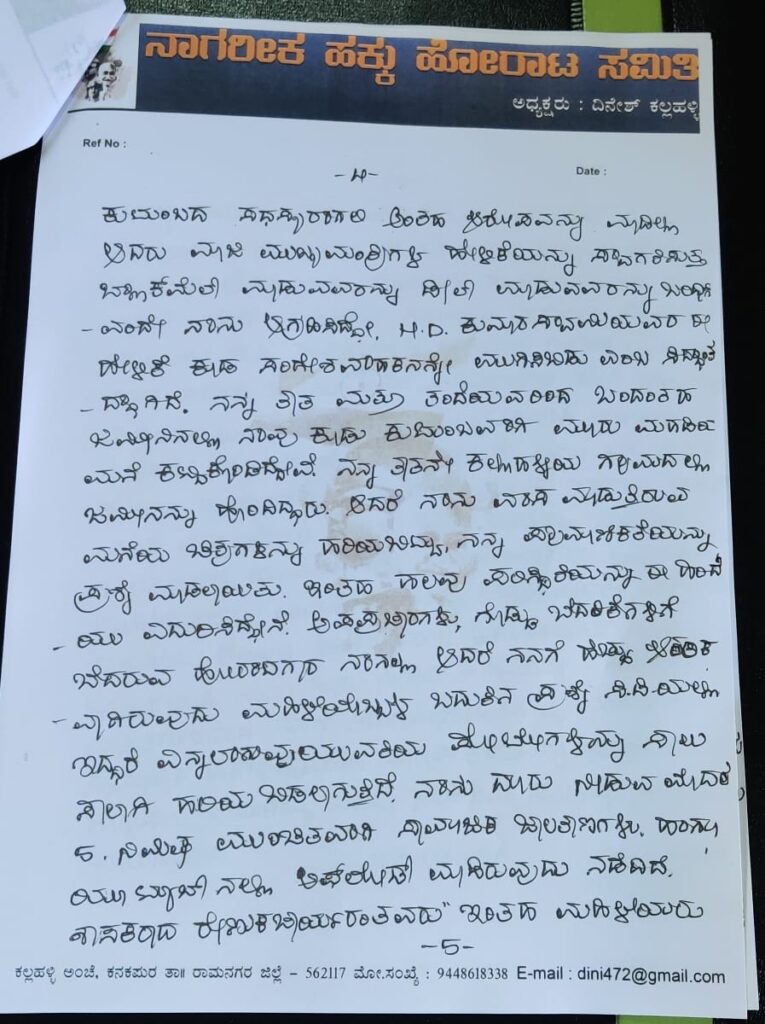 ನಾಗರೀಕ ಹಕ್ಕು ಹೋರಾಟ ಸಮಿತಿ
ಅಧ್ಯಕ್ಷರು : ದಿನೇಶ್ ಕಲ್ಲಹಳ್ಳಿ
Ref No :
Date :
-4-
ಕುಟುಂಬದ ಸದಸ್ಯರಾಗಲಿ ಅಂತಹ ಆರೋಪವನ್ನು ಮಾಡಿಲ್ಲ
ಆದರು ಮಾಜಿ ಮುಖ್ಯಮಂತ್ರಿಗಳ ಹೇಳಿಕೆಯನ್ನು ಸ್ವಾಗತಿಸುತ್ತ
ಬ್ಲಾಕ್‌ಮೆಲ್ ಮಾಡುವವರನ್ನು ಡೀಲ್ ಮಾಡುವವರನ್ನು ಬಂಧಿಸಿ
- ಎಂದೇ ನಾನು ಆಗ್ರಹಿಸಿದ್ದೇನೆ. H.D. ಕುಮಾರಸ್ವಾಮಿಯವರ ಈ
ಹೇಳಿಕೆ ಕೂಡ ಸಂದೇಶವಾಹಕನನ್ನೇ ಮುಗಿಸಿಬಿಡು ಎಂಬ ಸಿದ್ಧಾಂತ
- ದ್ದಾಗಿದೆ. ನನ್ನ ತಾತ ಮತ್ತು ತಂದೆಯವರಿಂದ ಬಂದಂತಹ
ಜಮೀನಿನಲ್ಲಿ ನಾವು ಕೂಡು ಕುಟುಂಬವಾಗಿ ಮೂರು ಮಹಡಿಯ
ಮನೆ ಕಟ್ಟಿಕೊಂಡಿದ್ದೇವೆ. ನನ್ನ ತಾತನೇ ಕಲ್ಲಹಳ್ಳಿಯ ಗ್ರಾಮದಲ್ಲಿ
ಜಮೀನನ್ನು ಹೊಂದಿದ್ದರು. ಆದರೆ ನಾನು ವಾಸ ಮಾಡುತ್ತಿರುವ
ಮನೆಯ ಚಿತ್ರಗಳನ್ನು ಹರಿಯಬಿಟ್ಟು, ನನ್ನ ಪ್ರಾಮಾಣಿಕತೆಯನ್ನು
ಪ್ರಶ್ನೆ ಮಾಡಲಾಯಿತು. ಇಂತಹ ಹಲವು ಈ ಹಿಂದೆ
- ಯು ಎದುರಿಸಿದ್ದೇನೆ. ಅಪಪ್ರಚಾರಗಳು, ಗೊಡ್ಡು ಬೆದರಿಕೆಗಳಿಗೆ
ಬೆದರುವ ಹೋರಾಟಗಾರ ನಾನಲ್ಲ ಆದರೆ ನನಗೆ ಹೆಚ್ಚು ಆತಂಕ
- ವಾಗಿರುವುದು ಮಹಿಳೆಯೊಬ್ಬಳ ಬದುಕಿನ ಪ್ರಶ್ನೆ ಸಿ.ಡಿ.ಯಲ್ಲಿ
ಇದ್ದರೆ ಯುವತಿಯ ಪೋಟೋಗಳನ್ನು ಸಾಲು
ಸಾಲಾಗಿ ಹರಿಯ ಬಿಡಲಾಗುತ್ತಿದೆ. ನಾನು ದೂರು ನೀಡುವ ಮೊದಲೆ
5. ನಿಮಿಷ ಮುಂಚಿತವಾಗಿ ಸಾಮಾಜಿಕ ಜಾಲತಾಣಗಳು, ಹಾಗೂ
ಯೂಟ್ಯೂಬ್ ನಲ್ಲಿ ಅಪ್‌ಲೋಡ್ ಮಾಡಿರುವುದು ನಡೆದಿದೆ.
ಶಾಸಕರಾದ ರೇಣುಕಚಾರ್ಯರಂತವರು" ಇಂತಹ ಮಹಿಳೆಯರು
-5-
ಕಲ್ಲಹಳ್ಳಿ ಅಂಚೆ, ಕನಕಪುರ ತಾ॥ ರಾಮನಗರ ಜಿಲ್ಲೆ - 562117 ಮೋ.ಸಂಖ್ಯೆ : 9448618338 E-mail : dini472@gmail.com